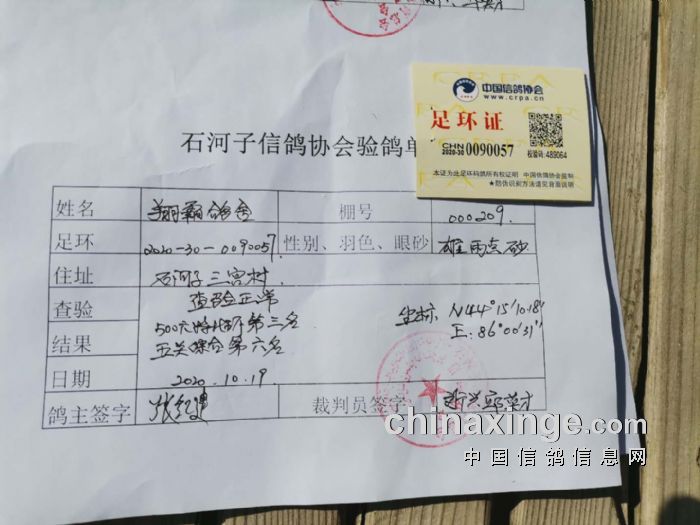 中国信鸽协会
www.crpa.cn
足环证
CHN
2020-30 0090057
校验码: 489064
本证为此足环鸽所有权证明 中国信鸽协会监制
★防伪识别方法请见背面说明
石河子信鸽协会验鸽单
姓名 翔霸鸽舍 棚号 000209.
足环 2020-30-0090057 性别、羽色、眼砂 雄 雨点 砂
住址 石河子三宫村
查验 查验正常
500元特比环第三名 坐标 N44°15'10.18"
结果 五关综合第六名 E:86°00'31"
日期 2020.10.19
鸽主签字 张红建 裁判员签字
chinaxinge.com
中国信鸽信息网